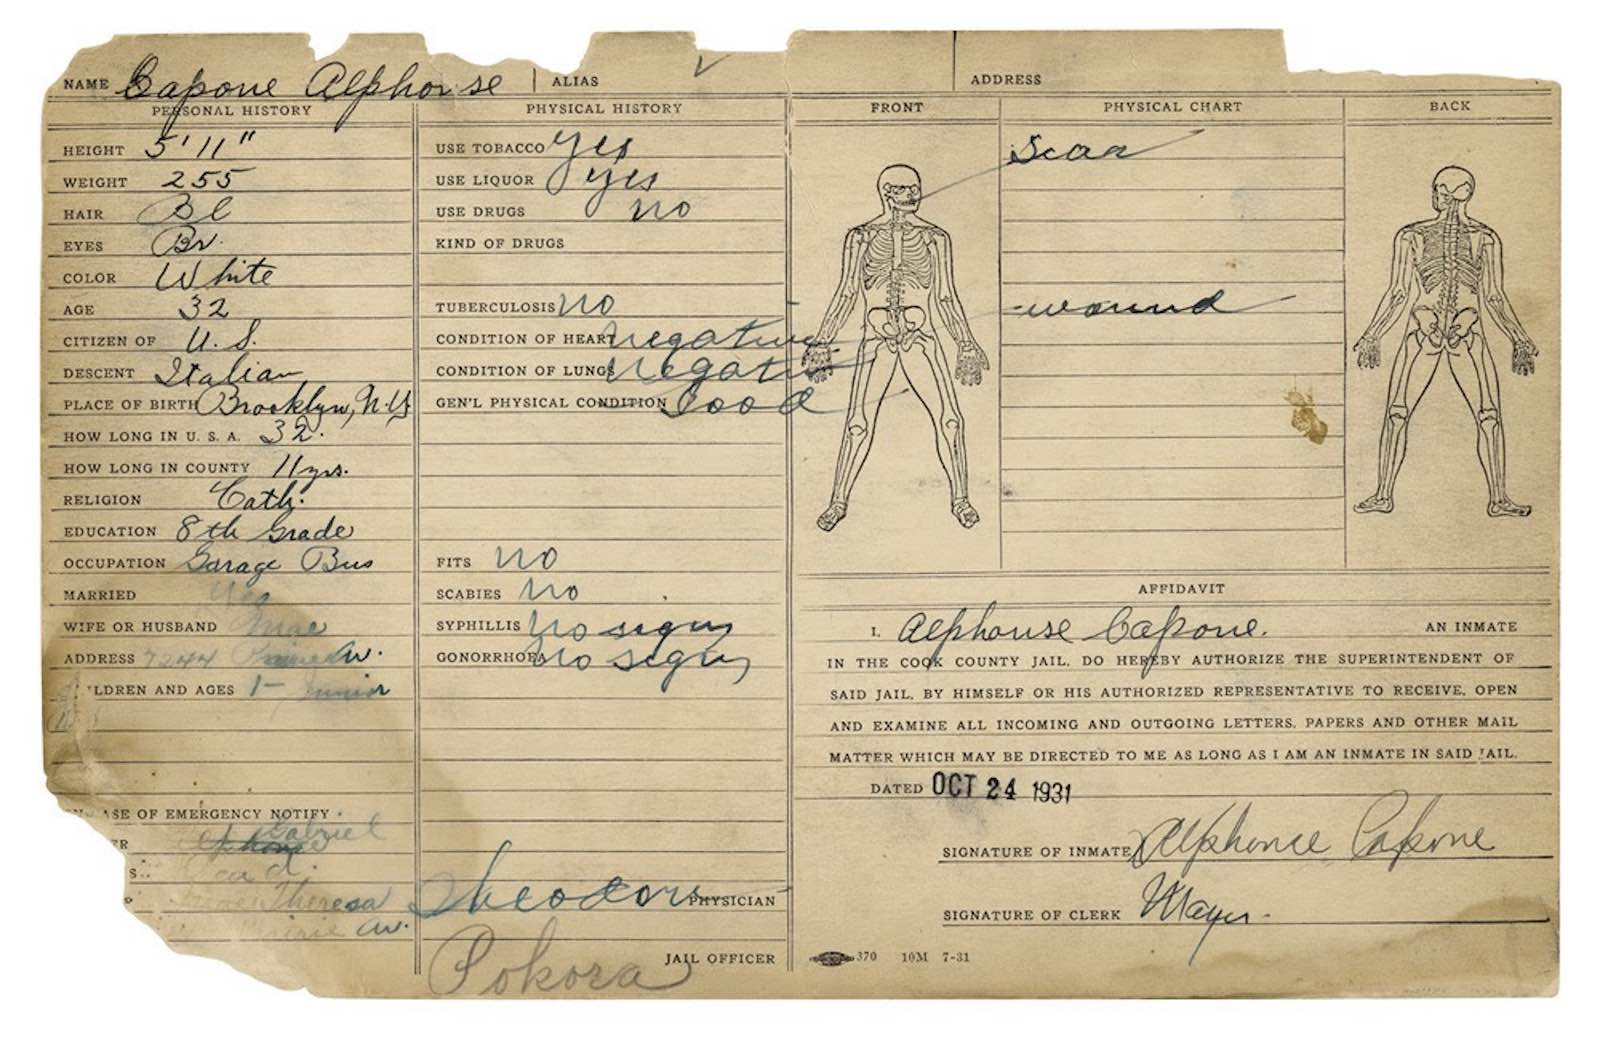 NAME Capone Alphonse ALIAS ADDRESS
PERSONAL HISTORY
HEIGHT 5'11"
WEIGHT 255
HAIR Bl
EYES Br.
COLOR White
AGE 32
CITIZEN OF U.S.
DESCENT Italian
PLACE OF BIRTH Brooklyn, N.Y
HOW LONG IN U. S. A. 32.
HOW LONG IN COUNTY 11yrs.
RELIGION Cath.
EDUCATION 8th Grade
OCCUPATION Garage Bus
MARRIED Yes
WIFE OR HUSBAND Mae
ADDRESS 7244 Av.
LDREN AND AGES 1- Junior
ASE OF EMERGENCY NOTIFY
Gabriel
Theresa
Av.
PHYSICAL HISTORY
USE TOBACCO yes
USE LIQUOR yes
USE DRUGS no
KIND OF DRUGS
TUBERCULOSIS no
CONDITION OF HEART negative
CONDITION OF LUNGS negative
GEN'L PHYSICAL CONDITION Good
FITS no
SCABIES no
SYPHILLIS no signs
GONORRHOEA no signs
Theodore PHYSICIAN
JAIL OFFICER
Pokora
FRONT PHYSICAL CHART BACK
Scar
wound
AFFIDAVIT
I, Alphonse Capone. AN INMATE
IN THE COOK COUNTY JAIL, DO HEREBY AUTHORIZE THE SUPERINTENDENT OF
SAID JAIL, BY HIMSELF OR HIS AUTHORIZED REPRESENTATIVE TO RECEIVE, OPEN
AND EXAMINE ALL INCOMING AND OUTGOING LETTERS, PAPERS AND OTHER MAIL
MATTER WHICH MAY BE DIRECTED TO ME AS LONG AS I AM AN INMATE IN SAID JAIL.
DATED OCT 24 1931
SIGNATURE OF INMATE Alphonse Capone
SIGNATURE OF CLERK Mayer
370 10M 7-31